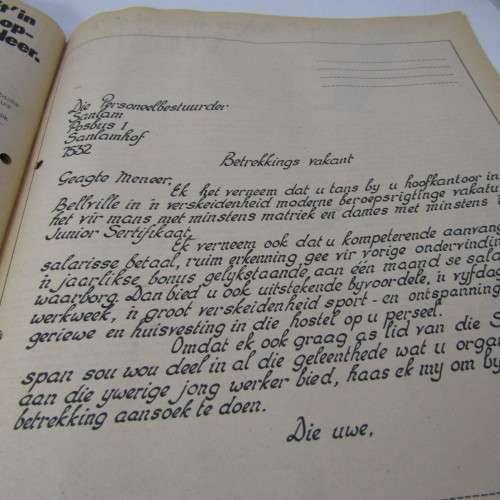 op-
deer.
Die Personeelbestuurder
Sanlam
Posbus 1
Sanlamhof
7532
Betrekkings vakant
Geagte Meneer,
Ek het verneem dat u tans by u hoofkantoor in
Bellville in 'n verskeidenheid moderne beroepsrigtinge
het vir mans met minstens matriek en dames met minstens
Junior Sertifikaat.
Ek verneem ook dat u kompeterende aanvang
salarisse betaal, ruim erkenning gee vir vorige ondervinding
'n jaarlikse bonus gelykstaande aan een maand se
waarborg. Dan bied u ook uitstekende byvoordele, 'n vyfdag
werkweek, 'n groot verskeidenheid sport- en ontspanning
geriewe en huisvesting in die hostel op u perseel.
Omdat ek ook graag as lid van die
span sou wou deel in al die geleenthede wat u
aan die ywerige jong werker bied, haas ek my om by
betrekking aansoek te doen.
Die uwe,